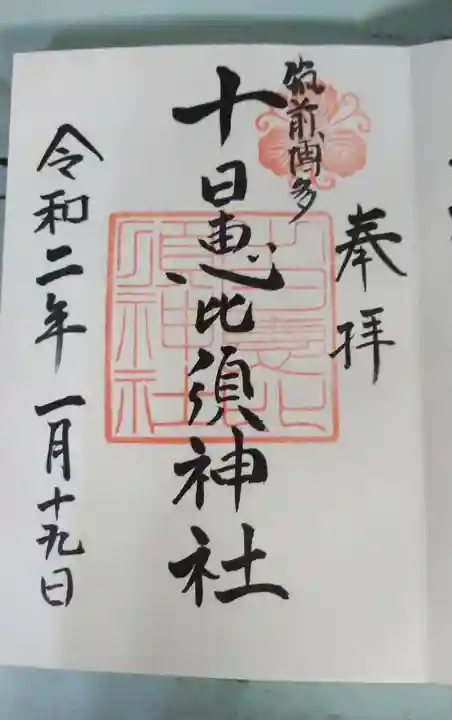 奉拝
筑前博多
十日恵比須神社
令和二年一月十九日
十日恵比
須神社